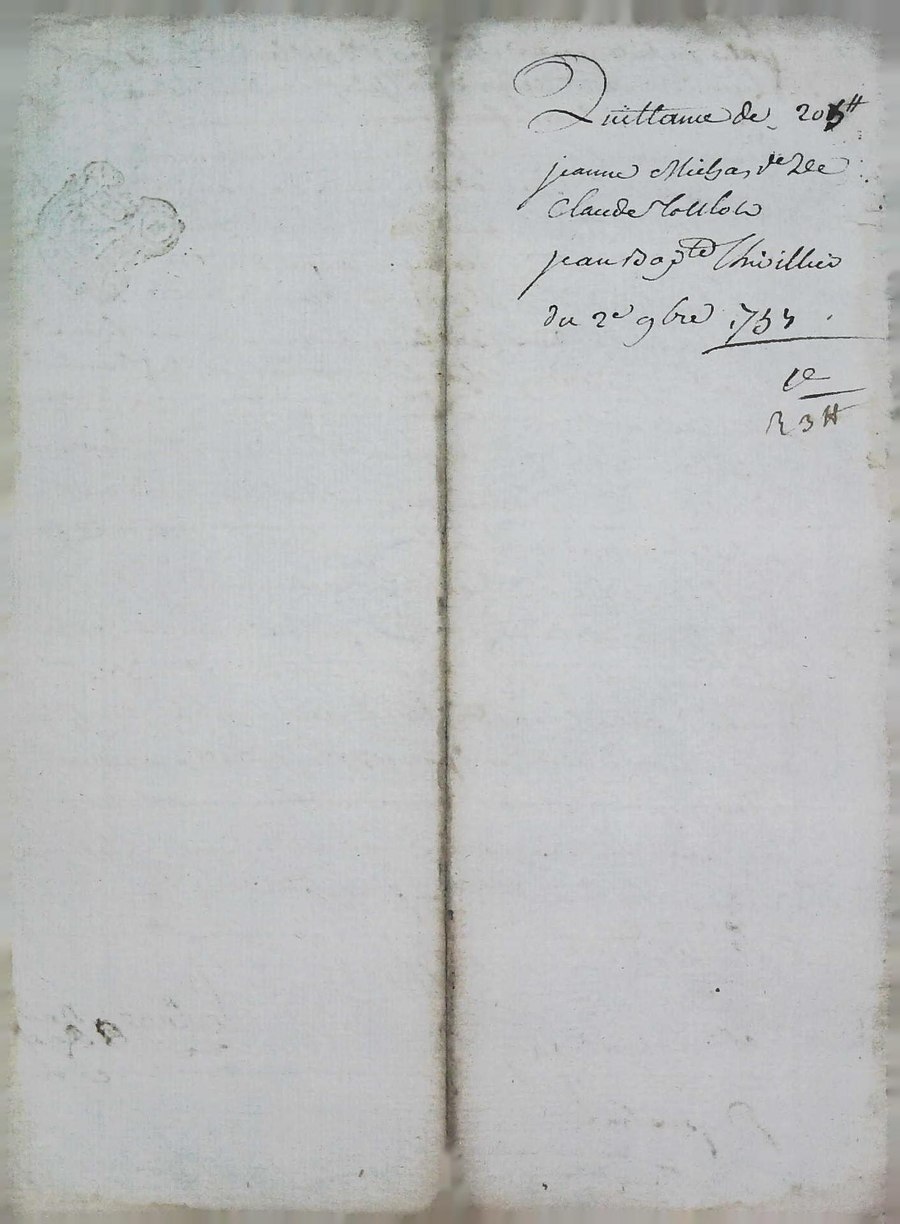 Quittance de 205 ₶
jeanne Michas v.de De
Claude
jean Bap.te Thivillier
du 2e 9bre 1755
R 3 ₶